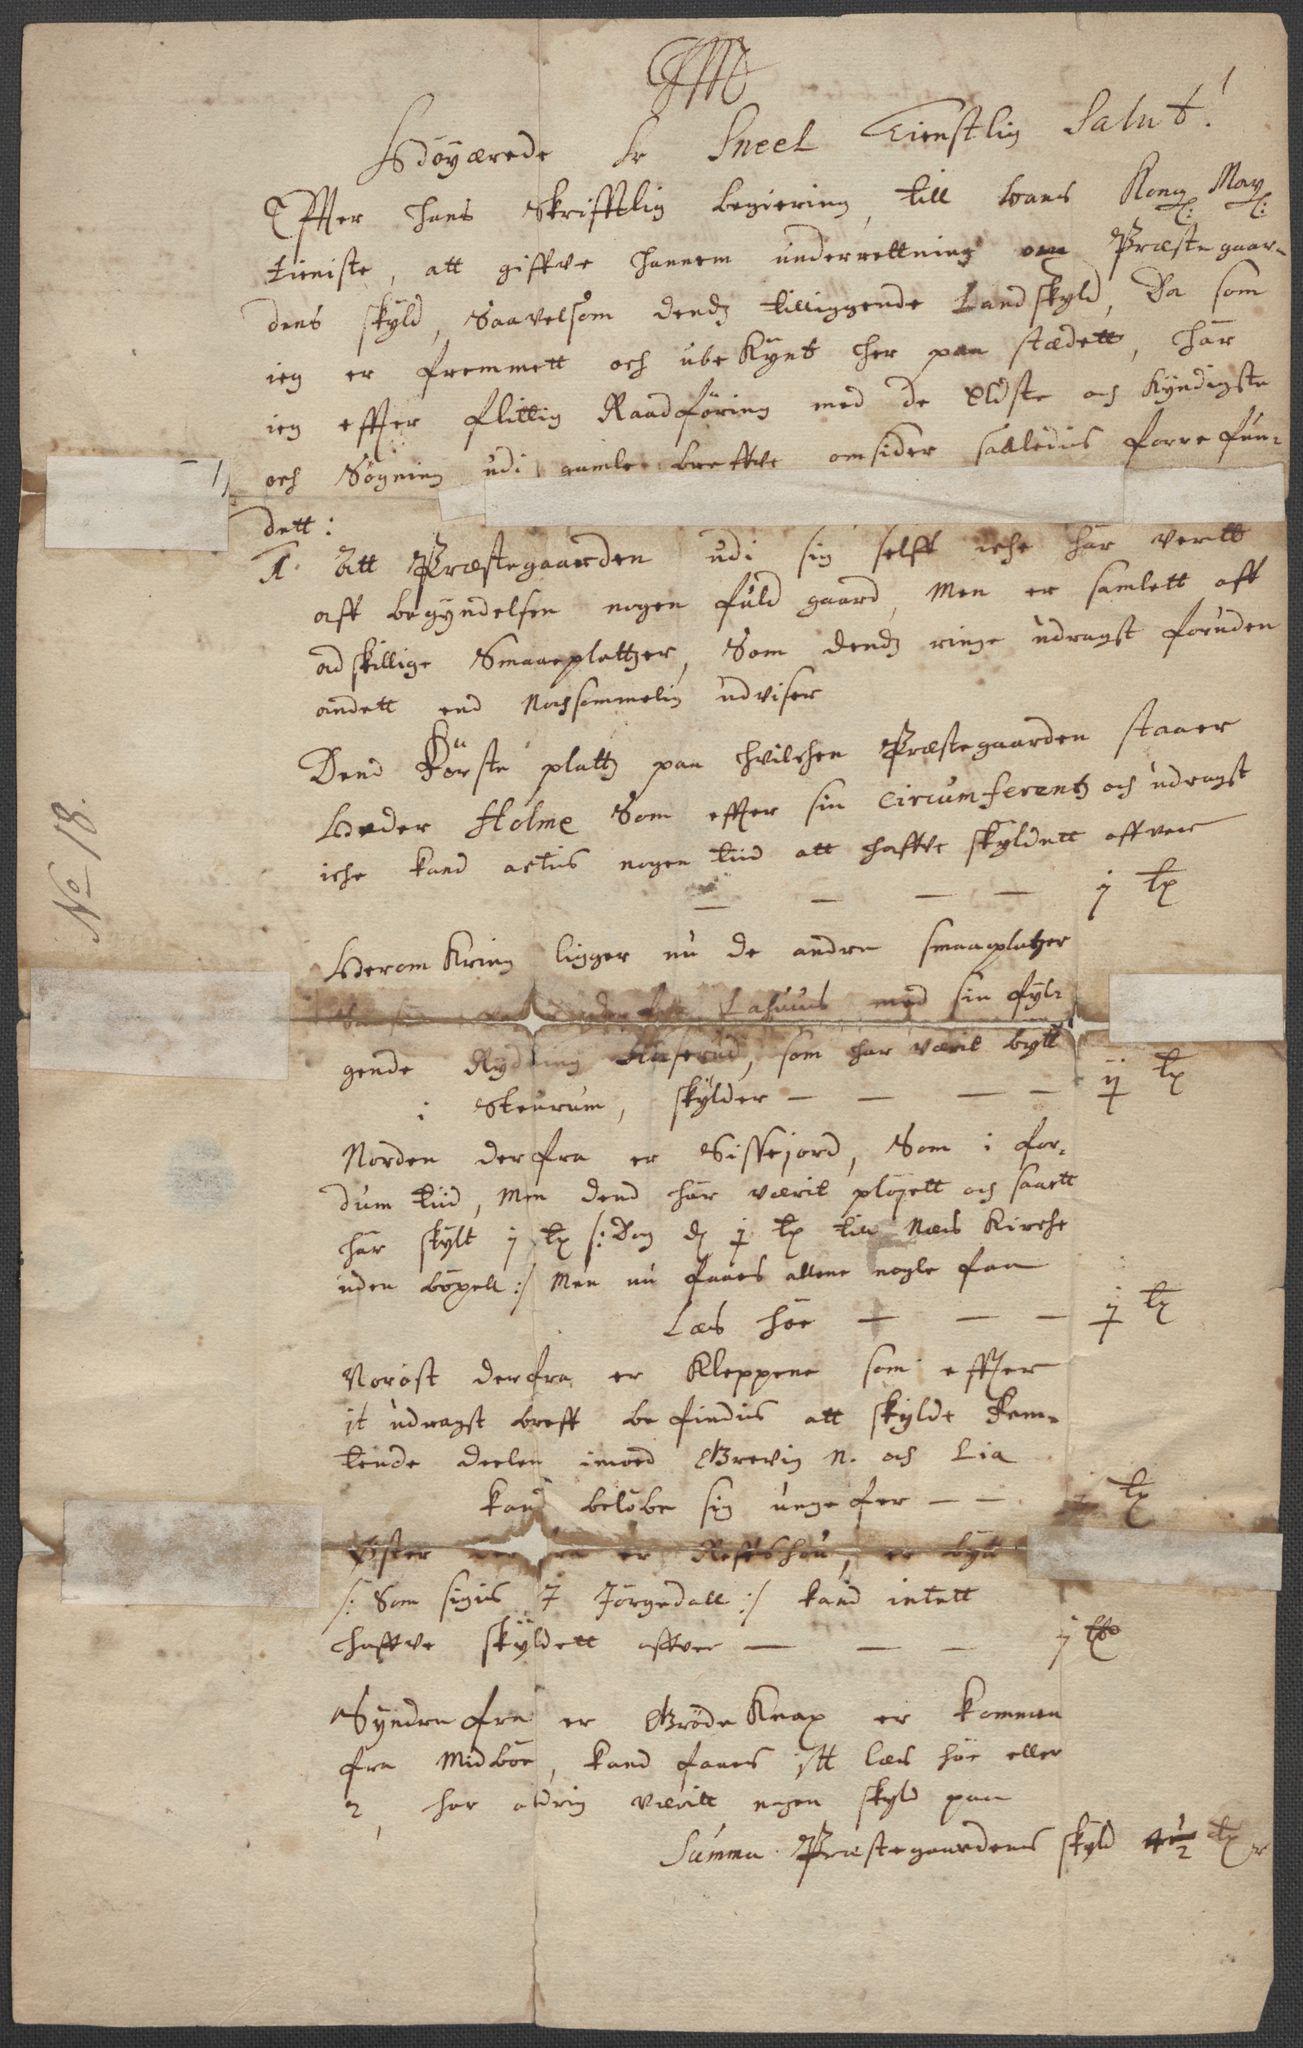 Høyærede Hr Sneel Tienstlig Salut!
Effter hans Skrifftlig begiering, till hans Kong: May:
tieniste, att giffve hannem underrettning om Præstegaar-
dens skyld, Saavelsom dends tilliggende Landskyld, Da som
ieg er fremmett och ubeKynt her paa stædett, har
ieg effter flittig Raadføring med de Eldste och Kyndigste
och Søgning udi gamle breffve omsider saaledis forrefun-
dett:
1. Att Præstegaarden udi sig selff iche har verett
aff begyndelsen nogen fuld gaard, Men er samlett aff
adskillige Smaaplattzer, Som dends ringe udragst foruden
andett end Nochsommelig udviser
Dend Første plattz paa hvilchen Præstegaarden staaer
Heder Holme Som effter sin circumferentz och udragst
iche kand actis nogen tiid att haffve skyldett offver
— — — — j tp
Herom Kring ligger nu de andre smaaplatzer
med sin fyl-
gende Rydning Huserud, som har værit bytt
i Steurum, skylder — — — —
Norden derfra er Sissejord, Som i for-
dum tiid, Men dend har værit pløyett och saaett
har skylt j tp /: Dog tp till Næs Kirche
uden bøxell :/ Men nu faaes allene nogle faa
Læs høe — — — tp
Norost derfra er Kleppene som effter
it udragst breff befindis att skylde Fem-
tende deelen imoed Grevig N. och Lia
kand beløbe sig ungefer — — tp
Øster derfra er Reffshou, er bytt
/: Som sigis I Jørgedall :/ kand intett
haffve skyldett offver — — — j tp
Syndre fra er GrødeKnap er kommen
fra Midbøe, kand faaes itt læs høe eller
2, har aldrig værrit nogen skyld paa
Summa Præstegaardens skyld 4½ tp
No 18.